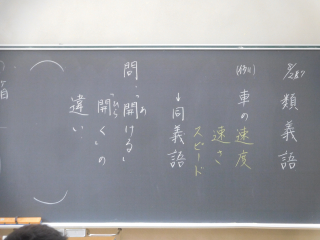 類義語
(例)
車の速度
速さ
スピード
↓同義語
問:「開ける」
「開く」の
違い
あ
ひら